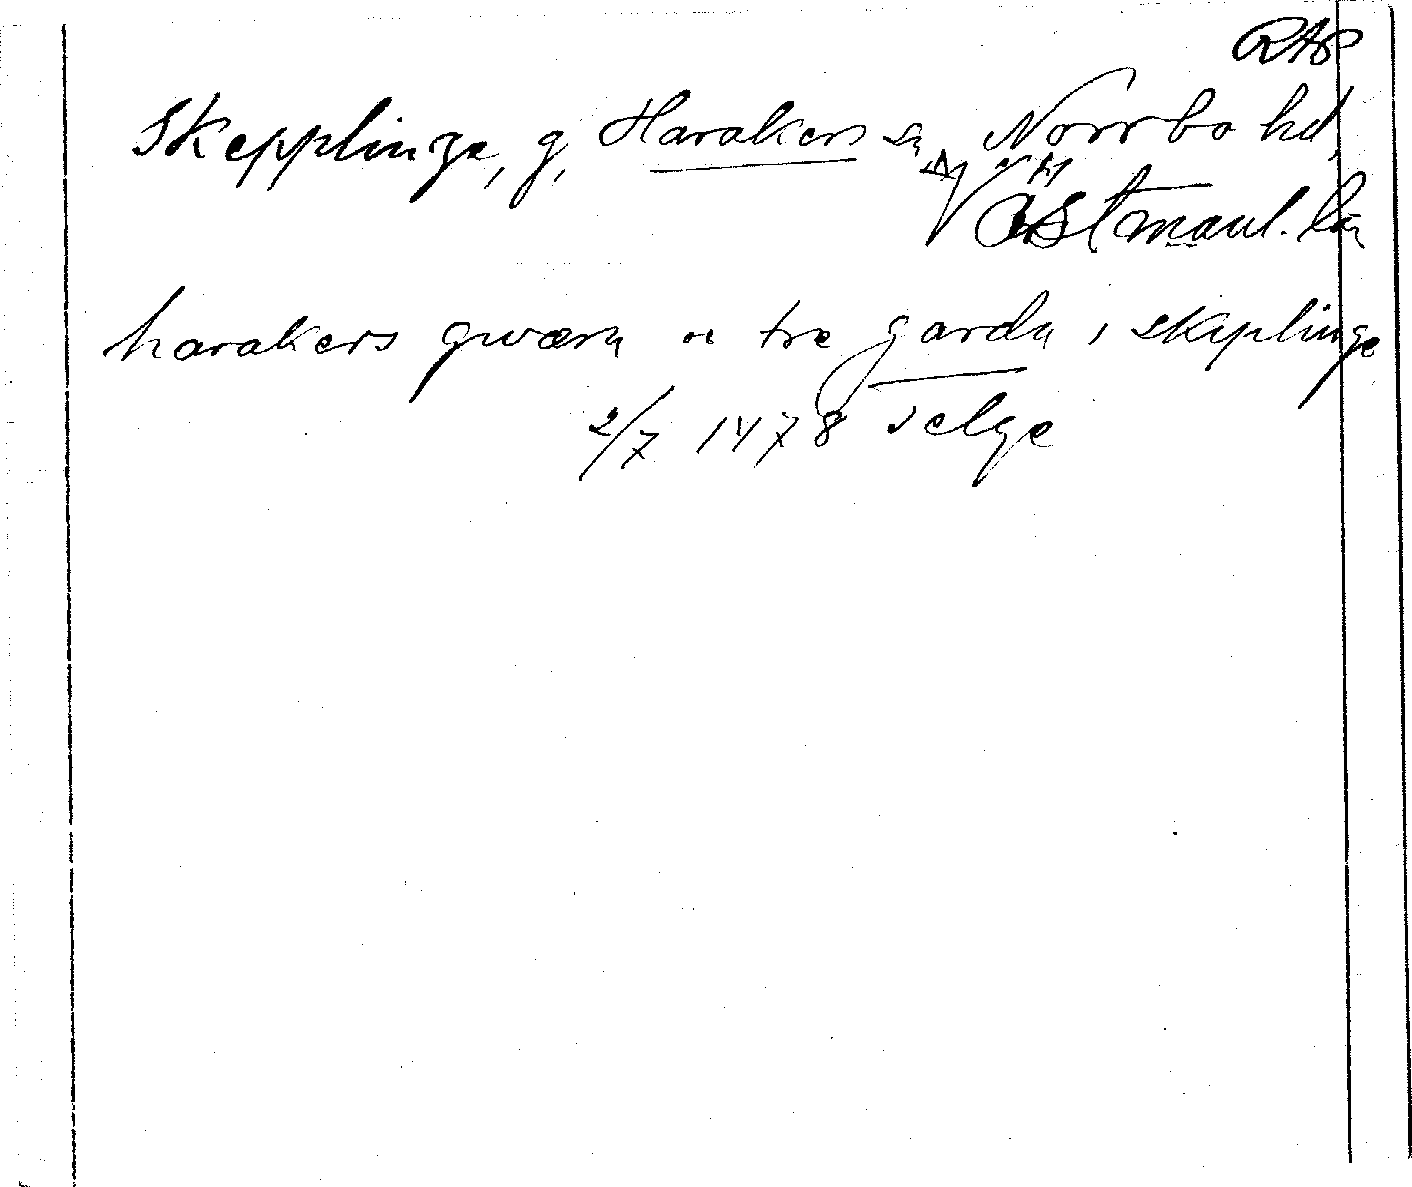 RAP
Skepplinge, g, Harakers sn, Norrbo hd,
Västmanl. län
harakers qwærn oc tre garda i skeplinge
2/7 1478 Selge